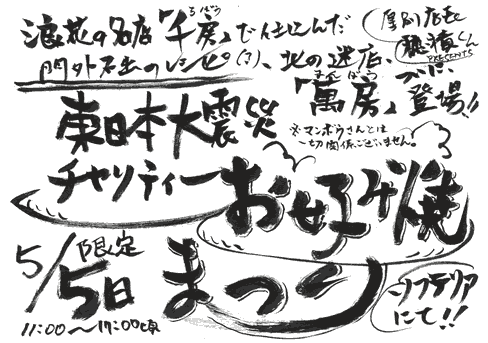 浪花の名店「千房」で仕込んだ
ちぼう
門外不出のレシピ(?)、北の迷店、
まんぼう
「萬房」ついに、登場!!
店長
穂積くん
PRESENTS
※マンボウさんとは
一切関係ございません。
東日本大震災
チャリティー
お好み焼
まつり
5/5日
限定
11:00〜17:00頃
にて!!